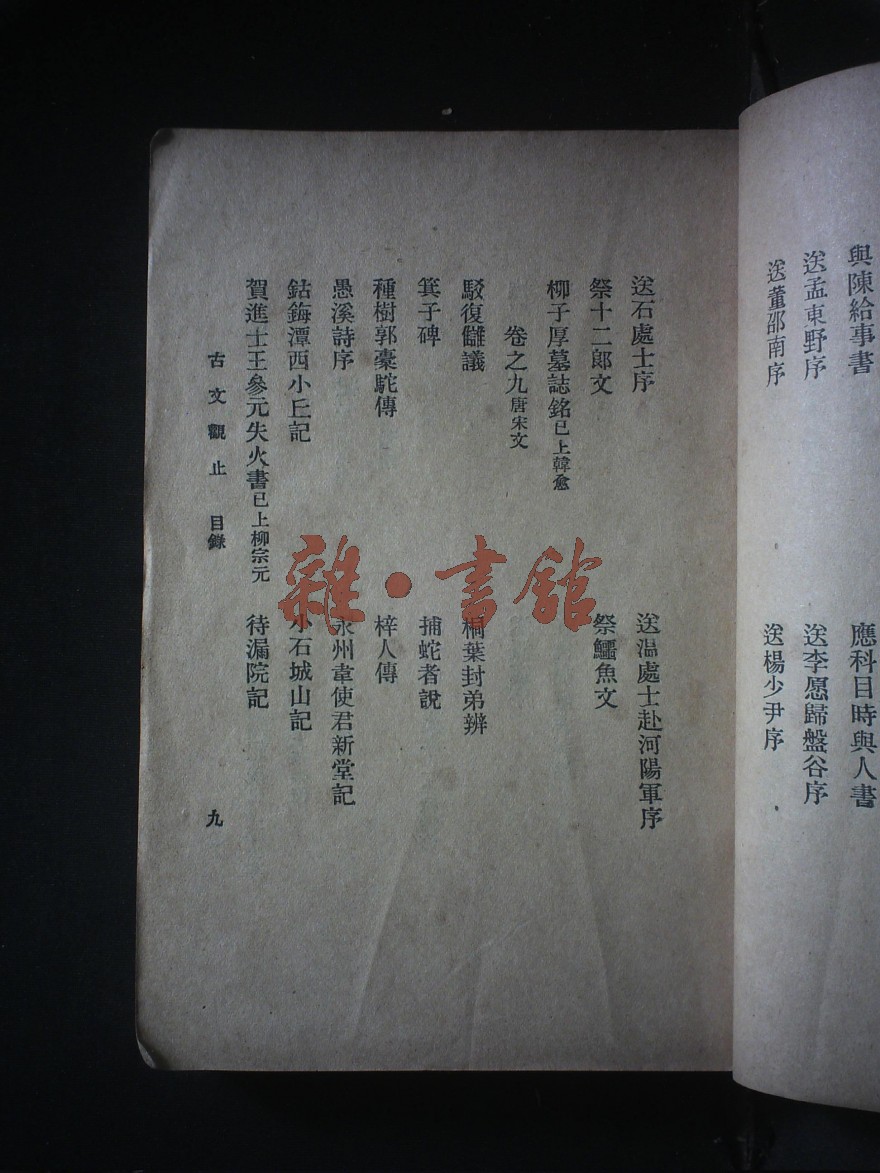 與陳給事書
應科目時與人書
送孟東野序
送李愿歸盤谷序
送董邵南序
送楊少尹序
送石處士序
送温處士赴河陽軍序
祭十二郎文
祭鱷魚文
柳子厚墓誌銘已上韓愈
卷之九唐宋文
駁復讎議
桐葉封弟辨
箕子碑
捕蛇者說
種樹郭橐駝傳
梓人傳
愚溪詩序
永州韋使君新堂記
鈷鉧潭西小丘記
小石城山記
賀進士王參元失火書已上柳宗元
待漏院記
古文觀止 目錄
九
雜·書館